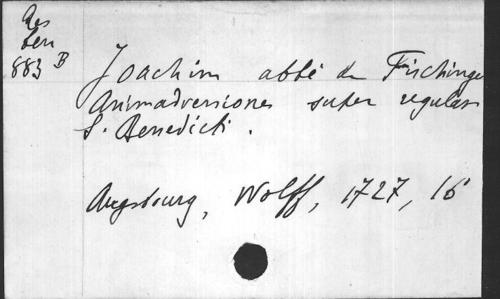 Res
ben
883 B
Joachim abbé de Fischinge
Animadversiones super regulam
S. Benedicti.
Augsbourg, Wolff, 1727, 16°